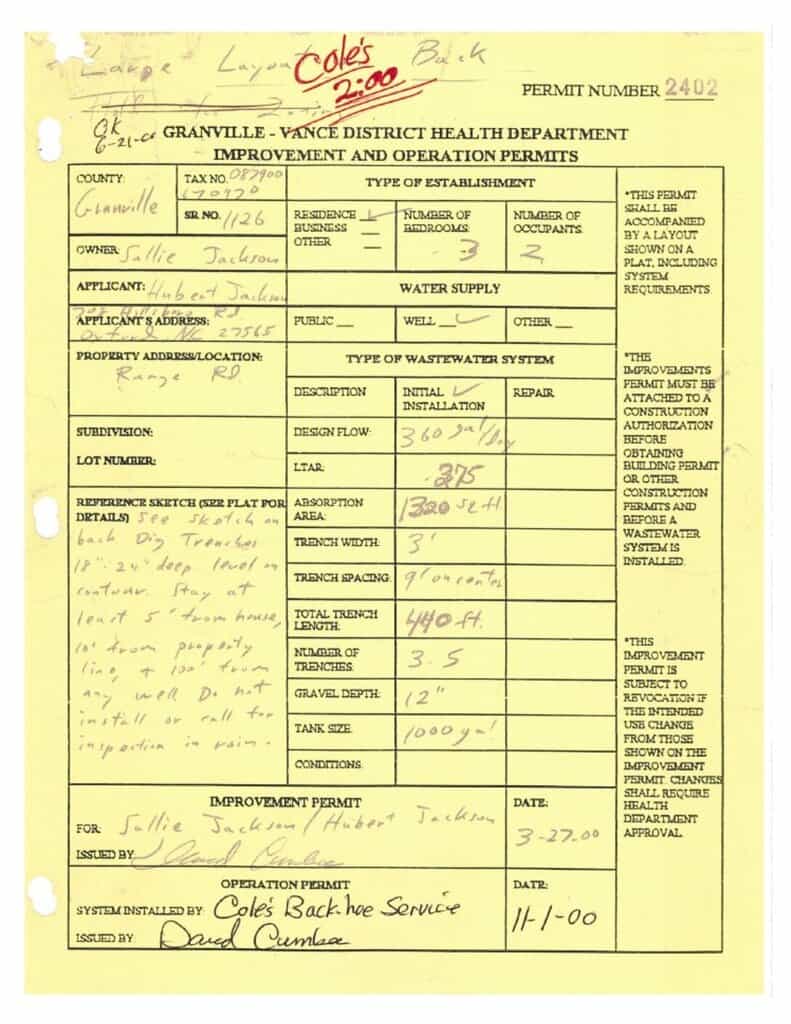 Large Layout Back
Cole's
2:00
PERMIT NUMBER 2402
OK
6-21-00
GRANVILLE - VANCE DISTRICT HEALTH DEPARTMENT
IMPROVEMENT AND OPERATION PERMITS
COUNTY:
Granville
TAX NO. 087900
SR NO. 1126
OWNER: Sallie Jackson
APPLICANT: Hubert Jackson
APPLICANT'S ADDRESS: Rd
Oxford NC 27565
PROPERTY ADDRESS/LOCATION:
Range Rd
SUBDIVISION:
LOT NUMBER:
REFERENCE SKETCH (SEE PLAT FOR
DETAILS) See sketch on
back Dig Trenches
18"-24" deep level on
contour. Stay at
least 5' from house,
10' from property
line, + 100' from
any well Do not
install or call for
inspection in rain.
TYPE OF ESTABLISHMENT
RESIDENCE ✓
BUSINESS __
OTHER __
NUMBER OF
BEDROOMS:
3
NUMBER OF
OCCUPANTS:
2
WATER SUPPLY
PUBLIC __ WELL ✓ OTHER __
TYPE OF WASTEWATER SYSTEM
DESCRIPTION
INITIAL ✓
INSTALLATION
REPAIR
DESIGN FLOW: 360 gal/day
LTAR: .275
ABSORPTION
AREA: 1320 sq ft
TRENCH WIDTH: 3'
TRENCH SPACING: 9' on center
TOTAL TRENCH
LENGTH: 440 ft.
NUMBER OF
TRENCHES: 3-5
GRAVEL DEPTH: 12"
TANK SIZE: 1000 gal
CONDITIONS:
*THIS PERMIT
SHALL BE
ACCOMPANIED
BY A LAYOUT
SHOWN ON A
PLAT, INCLUDING
SYSTEM
REQUIREMENTS.
*THE
IMPROVEMENTS
PERMIT MUST BE
ATTACHED TO A
CONSTRUCTION
AUTHORIZATION
BEFORE
OBTAINING
BUILDING PERMIT
OR OTHER
CONSTRUCTION
PERMITS AND
BEFORE A
WASTEWATER
SYSTEM IS
INSTALLED.
*THIS
IMPROVEMENT
PERMIT IS
SUBJECT TO
REVOCATION IF
THE INTENDED
USE CHANGE
FROM THOSE
SHOWN ON THE
IMPROVEMENT
PERMIT. CHANGES
SHALL REQUIRE
HEALTH
DEPARTMENT
APPROVAL
IMPROVEMENT PERMIT
FOR: Sallie Jackson / Hubert Jackson
ISSUED BY David Cumbee
DATE:
3-27-00
OPERATION PERMIT
SYSTEM INSTALLED BY: Cole's Back-hoe Service
ISSUED BY David Cumbee
DATE:
11-1-00